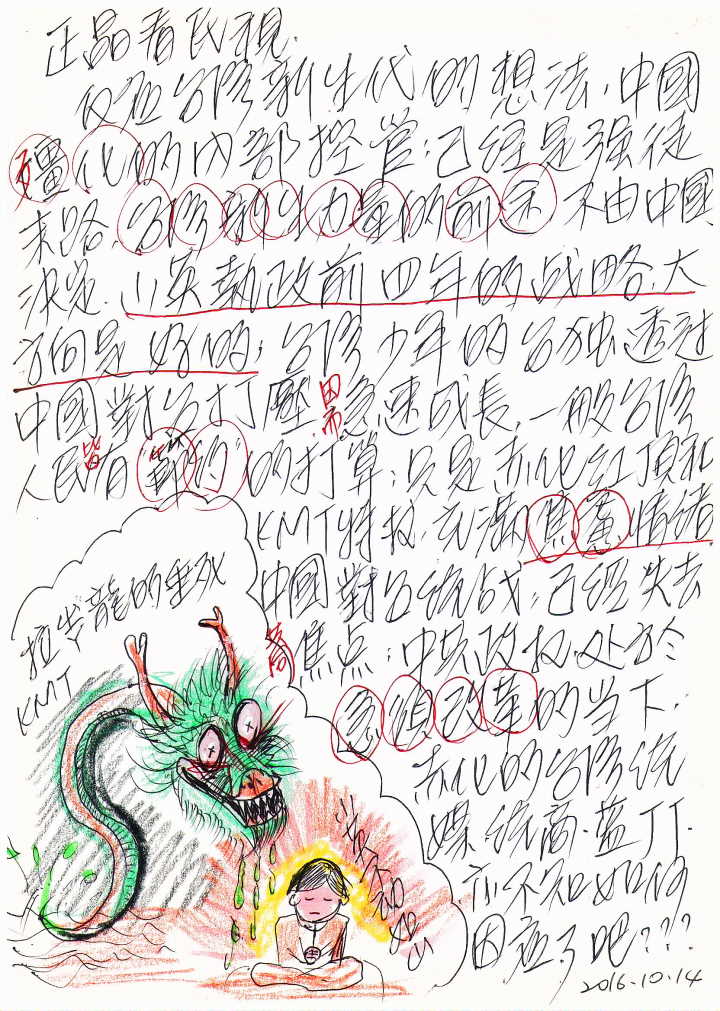 正品看民視.
反在台灣新生代的想法,中國
殭化的內部控管;已經是強徒
末路,台灣新生力量的前途不由中國
決定.小英執政前四年的战略,大
方向是好的;台灣少年的台独透过
中國對台打壓,因而急速成長,一般台灣
人民皆自"節約"的打算;只是赤化紅頂和
KMT特权,充滿焦慮情緒
中國對台統战;已經失去
著焦点;中共政权处於
急須改革的当下.
赤化的台灣統
媒.統商.藍丁丁.
亦不知如何
因應了吧???
2016.10.14
拉半龍的垂死
KMT
不知如